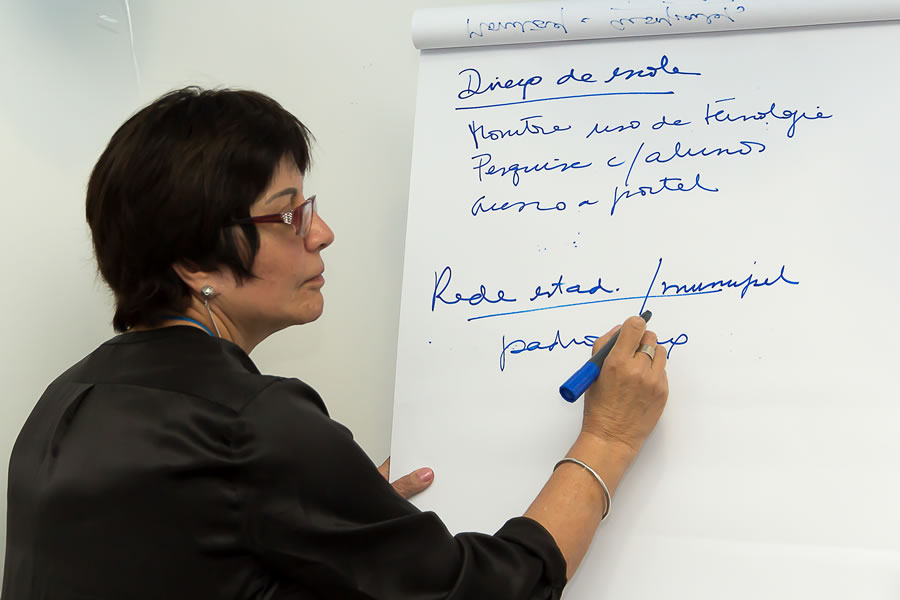 Direção de escola
Monitora uso de tecnologia
Pesquisa c/ alunos
acesso a portal
Rede estad. / municipal